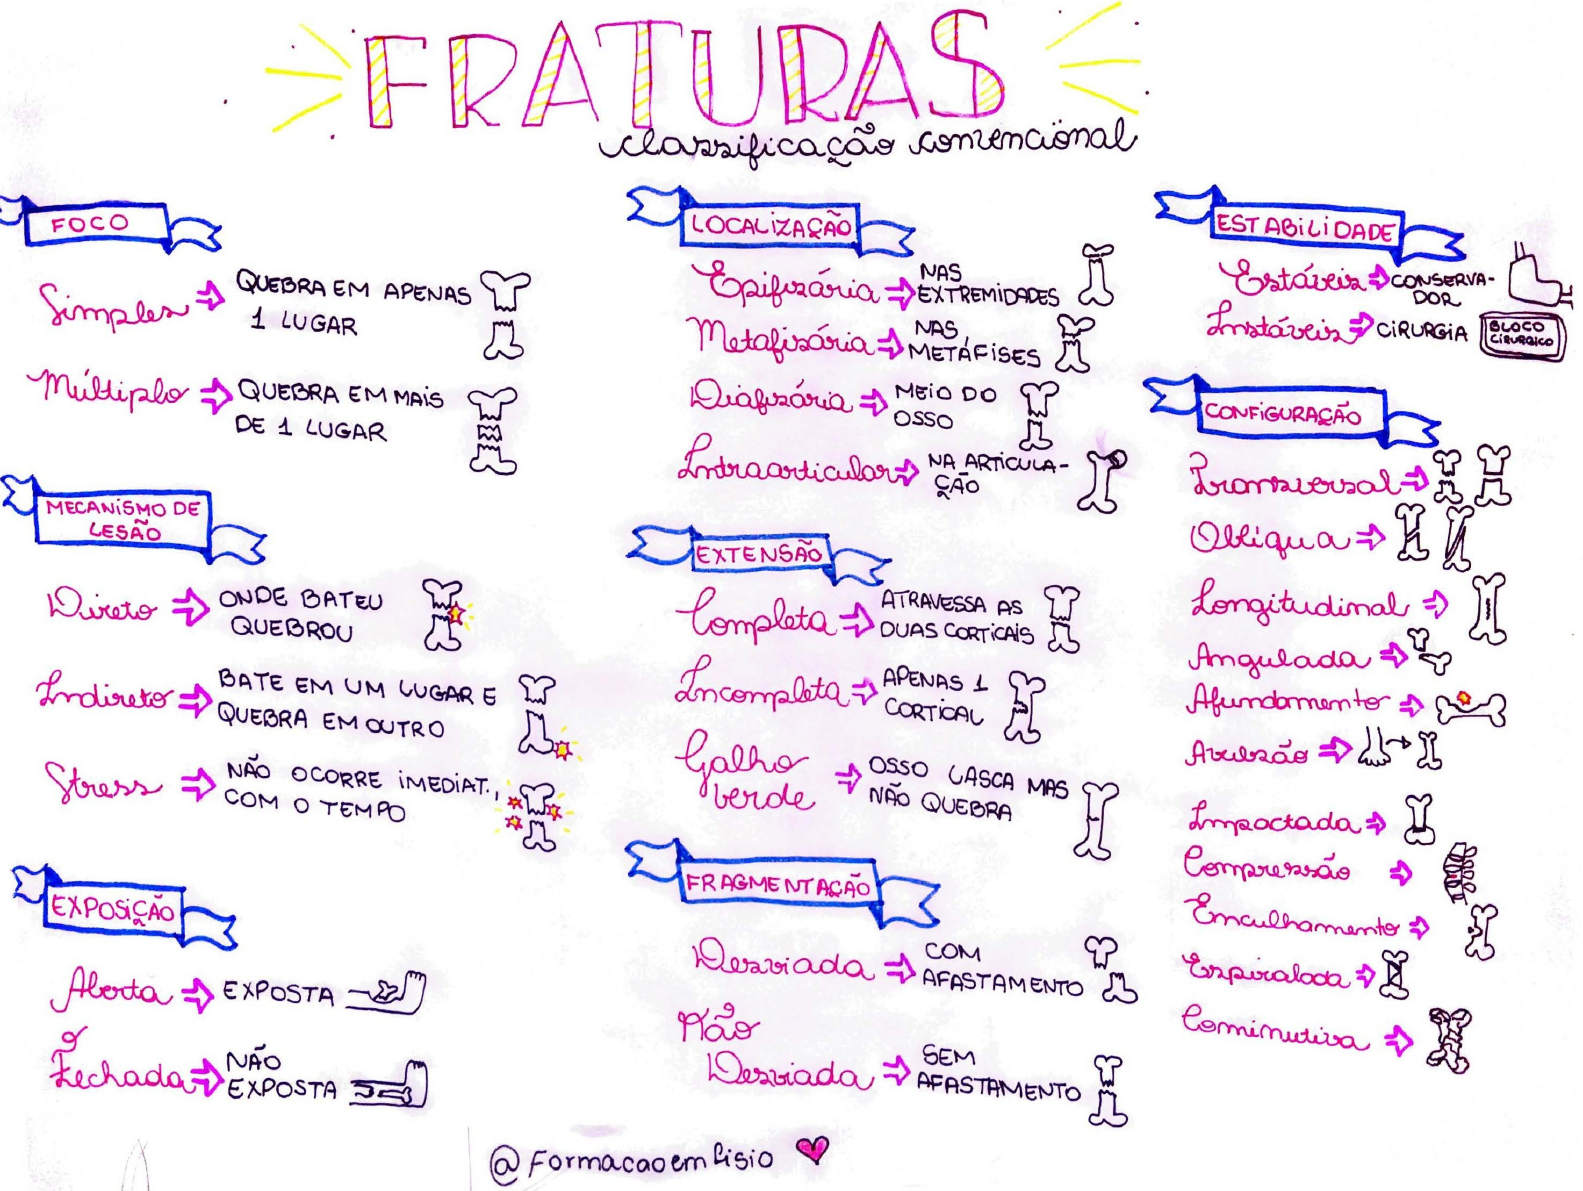 FRATURAS
classificação convencional
FOCO
Simples ⇒ QUEBRA EM APENAS
1 LUGAR
Múltiplo ⇒ QUEBRA EM MAIS
DE 1 LUGAR
MECANISMO DE
LESÃO
Direto ⇒ ONDE BATEU
QUEBROU
Indireto ⇒ BATE EM UM LUGAR E
QUEBRA EM OUTRO
Stress ⇒ NÃO OCORRE IMEDIAT.,
COM O TEMPO
EXPOSIÇÃO
Aberta ⇒ EXPOSTA
Fechada ⇒ NÃO
EXPOSTA
LOCALIZAÇÃO
Epifisária ⇒ NAS
EXTREMIDADES
Metafisária ⇒ NAS
METÁFISES
Diafisária ⇒ MEIO DO
OSSO
Intraarticular ⇒ NA ARTICULA-
ÇÃO
EXTENSÃO
Completa ⇒ ATRAVESSA AS
DUAS CORTICAIS
Incompleta ⇒ APENAS 1
CORTICAL
Galho
verde ⇒ OSSO LASCA MAS
NÃO QUEBRA
FRAGMENTAÇÃO
Desviada ⇒ COM
AFASTAMENTO
Não
Desviada ⇒ SEM
AFASTAMENTO
ESTABILIDADE
Estáveis ⇒ CONSERVA-
DOR
Instáveis ⇒ CIRURGIA
BLOCO
CIRURGICO
CONFIGURAÇÃO
Transversal ⇒
Oblíqua ⇒
Longitudinal ⇒
Angulada ⇒
Afundamento ⇒
Avulsão ⇒
Impactada ⇒
Compressão ⇒
Enculhamento ⇒
Espiralada ⇒
Cominutiva ⇒
@Formacaoemfisio